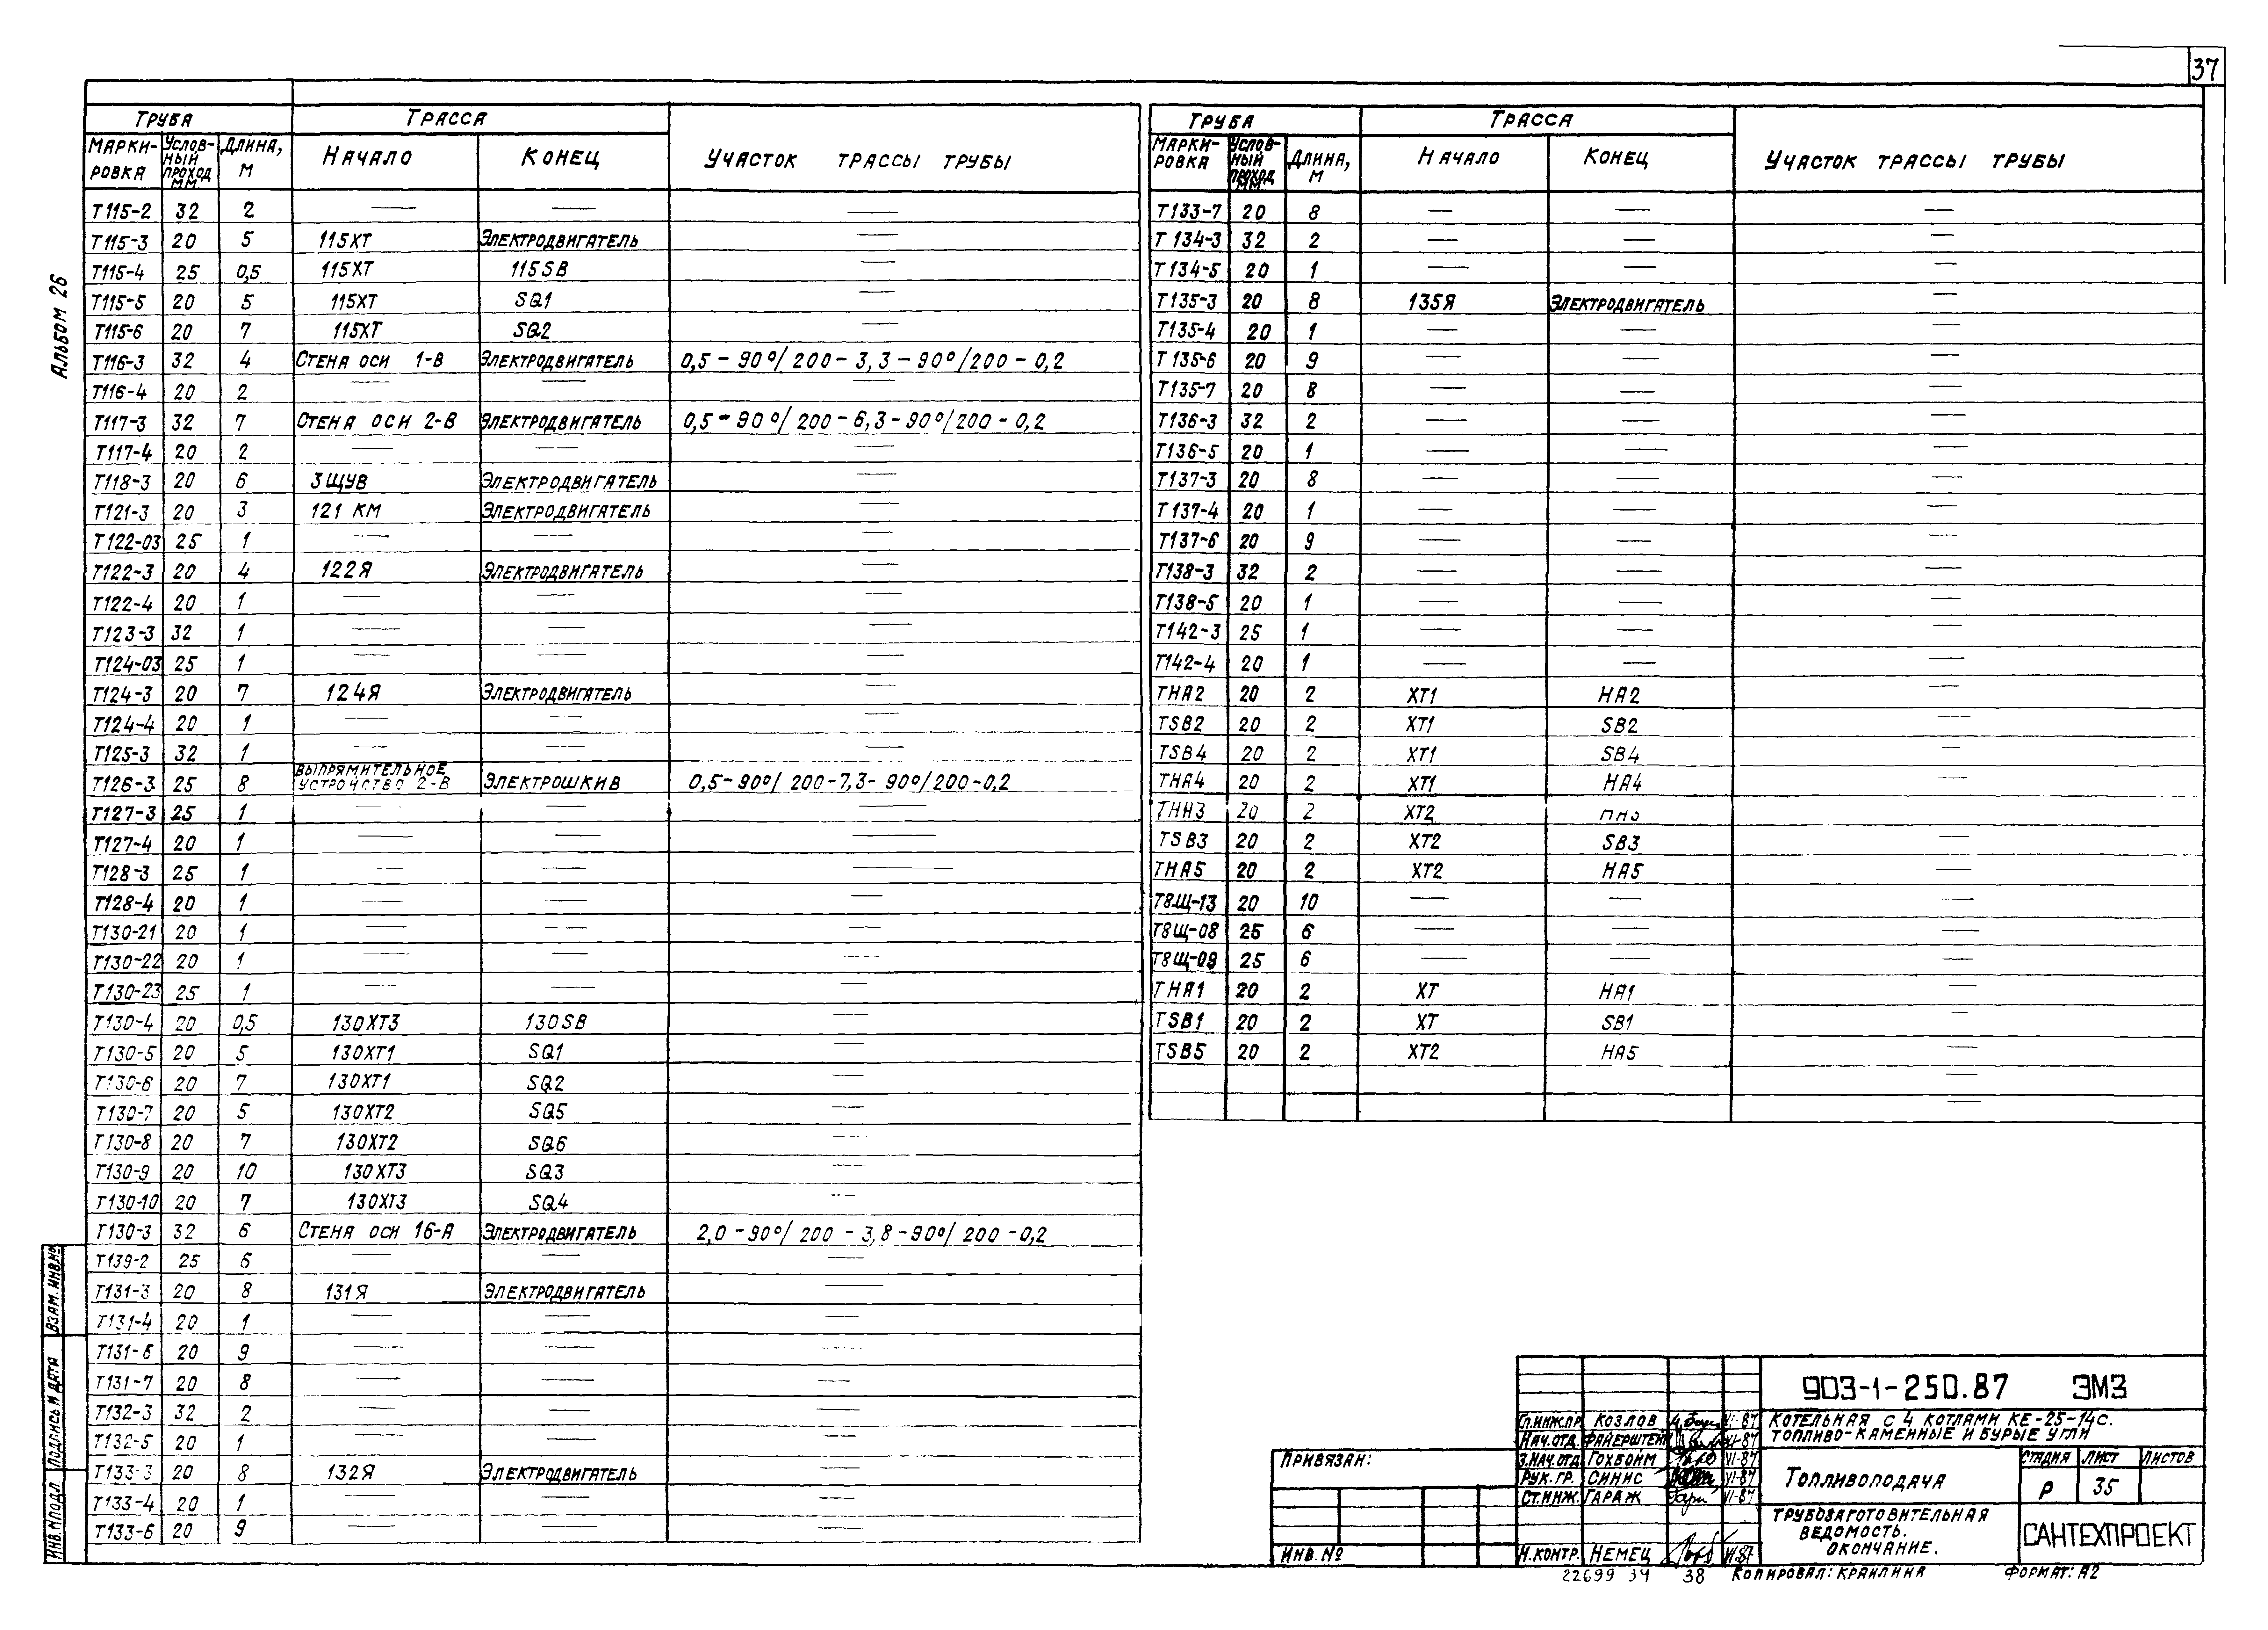 37
Альбом 26
Труба Трасса Участок трассы трубы
Марки-ровка Услов-ный проход мм Длина, м Начало Конец
Т115-2 32 2 — — —
Т115-3 20 5 115ХТ Электродвигатель —
Т115-4 25 0,5 115ХТ 115SB —
Т115-5 20 5 115ХТ SQ1 —
Т115-6 20 7 115ХТ SQ2 —
Т116-3 32 4 Стена оси 1-В Электродвигатель 0,5-90°/200-3,3-90°/200-0,2
Т116-4 20 2 — — —
Т117-3 32 7 Стена оси 2-В Электродвигатель 0,5-90°/200-6,3-90°/200-0,2
Т117-4 20 2 — — —
Т118-3 20 6 3ЩУВ Электродвигатель —
Т121-3 20 3 121 КМ Электродвигатель —
Т122-03 25 1 — — —
Т122-3 20 4 122Я Электродвигатель —
Т122-4 20 1 — — —
Т123-3 32 1 — — —
Т124-03 25 1 — — —
Т124-3 20 7 124Я Электродвигатель —
Т124-4 20 1 — — —
Т125-3 32 1 — — —
Т126-3 25 8 Выпрямительное устройство 2-В Электрошкив 0,5-90°/200-7,3-90°/200-0,2
Т127-3 25 1 — — —
Т127-4 20 1 — — —
Т128-3 25 1 — — —
Т128-4 20 1 — — —
Т130-21 20 1 — — —
Т130-22 20 1 — — —
Т130-23 25 1 — — —
Т130-4 20 0,5 130ХТ3 130SB —
Т130-5 20 5 130ХТ1 SQ1 —
Т130-6 20 7 130ХТ1 SQ2 —
Т130-7 20 5 130ХТ2 SQ5 —
Т130-8 20 7 130ХТ2 SQ6 —
Т130-9 20 10 130ХТ3 SQ3 —
Т130-10 20 7 130ХТ3 SQ4 —
Т130-3 32 6 Стена оси 16-А Электродвигатель 2,0-90°/200-3,8-90°/200-0,2
Т139-2 25 6 — — —
Т131-3 20 8 131Я Электродвигатель —
Т131-4 20 1 — — —
Т131-6 20 9 — — —
Т131-7 20 8 — — —
Т132-3 32 2 — — —
Т132-5 20 1 — — —
Т133-3 20 8 132Я Электродвигатель —
Т133-4 20 1 — — —
Т133-6 20 9 — — —
Труба Трасса Участок трассы трубы
Марки-ровка Услов-ный проход мм Длина, м Начало Конец
Т133-7 20 8 — — —
Т134-3 32 2 — — —
Т134-5 20 1 — — —
Т135-3 20 8 135Я Электродвигатель —
Т135-4 20 1 — — —
Т135-6 20 9 — — —
Т135-7 20 8 — — —
Т136-3 32 2 — — —
Т136-5 20 1 — — —
Т137-3 20 8 — — —
Т137-4 20 1 — — —
Т137-6 20 9 — — —
Т138-3 32 2 — — —
Т138-5 20 1 — — —
Т142-3 25 1 — — —
Т142-4 20 1 — — —
ТНА2 20 2 ХТ1 НА2 —
ТSB2 20 2 ХТ1 SB2 —
ТSB4 20 2 ХТ1 SB4 —
ТНА4 20 2 ХТ1 НА4 —
20 2 ХТ2
ТSB3 20 2 ХТ2 SB3 —
ТНА5 20 2 ХТ2 НА5 —
Т8Щ-13 20 10 — — —
Т8Щ-08 25 6 — — —
Т8Щ-09 25 6 — — —
ТНА1 20 2 ХТ НА1 —
ТSB1 20 2 ХТ SB1 —
ТSB5 20 2 ХТ2 НА5 —
—
—
Взам. инв.№
Подпись и дата
Инв.№подл.
Привязан:
Инв.№
Гл.инж.пр Козлов VI-87
Нач.отд. Файерштейн VI-87
З.нач.отд Гохбоим VI-87
Рук.гр. Синис VI-87
Ст.инж. Гараж VI-87
Н.контр. Немец VI-87
903-1-250.87 ЭМ3
Котельная с 4 котлами КЕ-25-14с.
Топливо-каменные и бурые угли
Топливоподача
Стадия Лист Листов
Р 35
Трубозаготовительная
ведомость.
Окончание.
САНТЕХПРОЕКТ
22699 34 38 Копировал: Краилина Формат: А2